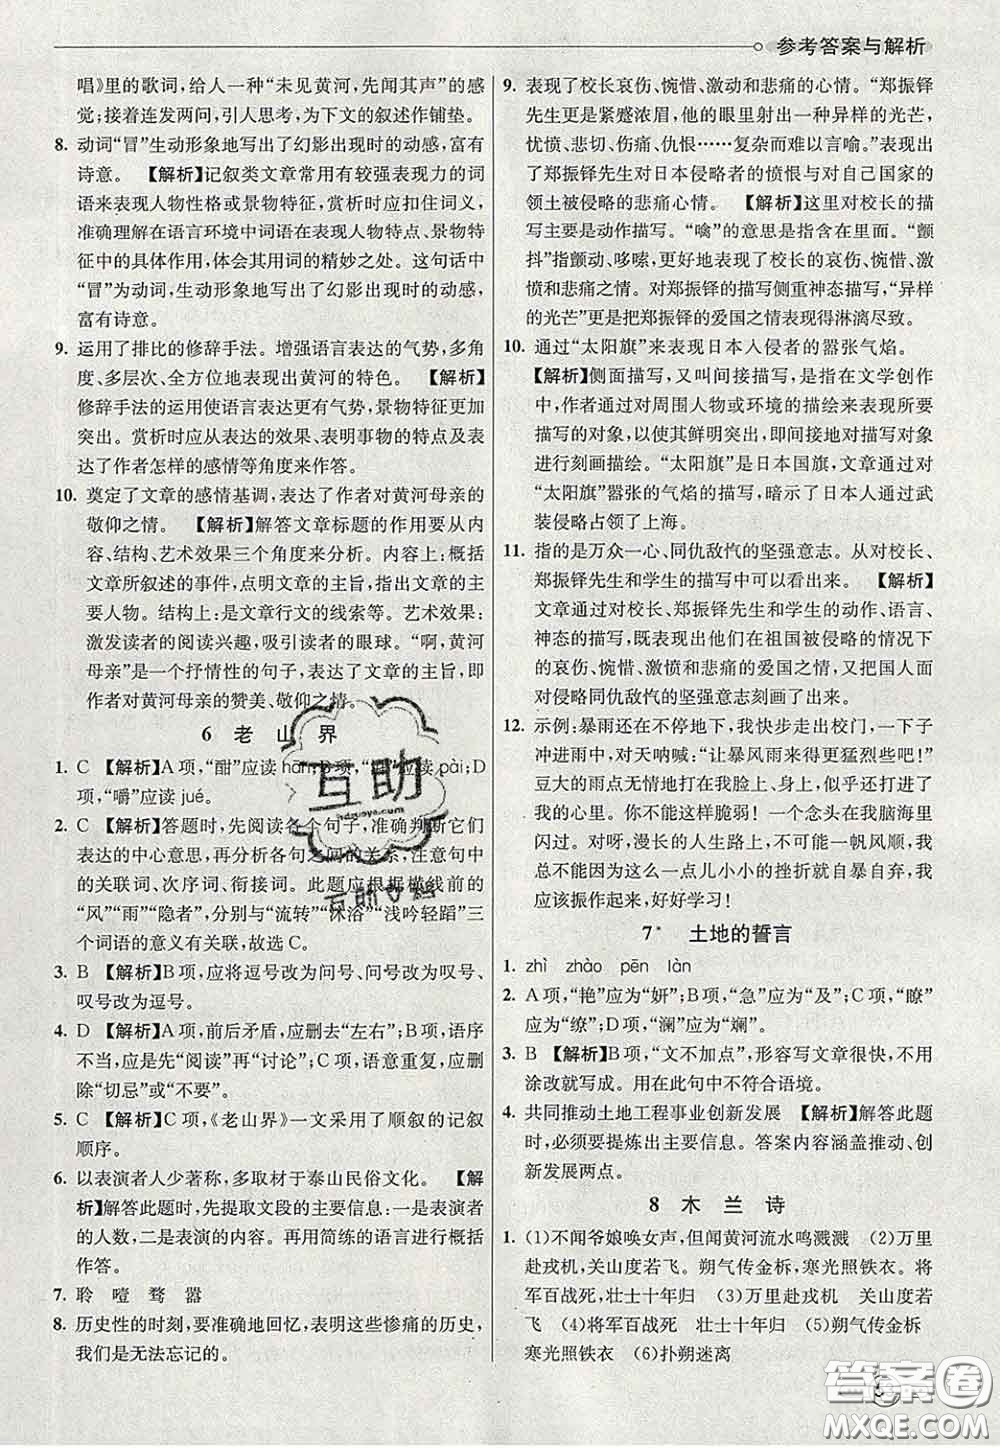 参考答案与解析
唱》里的歌词，给人一种“未见黄河，先闻其声”的感
觉；接着连发两问，引人思考，为下文的叙述作铺垫。
8. 动词“冒”生动形象地写出了幻影出现时的动感，富有
诗意。 【解析】记叙类文章常用有较强表现力的词
语来表现人物性格或景物特征，赏析时应扣住词义，
准确理解在语言环境中词语在表现人物特点、景物特
征中的具体作用，体会其用词的精妙之处。这句话中
“冒”为动词，生动形象地写出了幻影出现时的动感，
富有诗意。
9. 运用了排比的修辞手法。增强语言表达的气势，多角
度、多层次、全方位地表现出黄河的特色。 【解析】
修辞手法的运用使语言表达更有气势，景物特征更加
突出。赏析时应从表达的效果、表明事物的特点及表
达了作者怎样的感情等角度来作答。
10. 奠定了文章的感情基调，表达了作者对黄河母亲的
敬仰之情。 【解析】解答文章标题的作用可以从内
容、结构、艺术效果三个角度来分析。内容上：概括
文章所叙述的事件，点明文章的主旨，指出文章的主
要人物。结构上：是文章行文的线索等。艺术效果：
激发读者的阅读兴趣，吸引读者的眼球。“啊，黄河
母亲”是一个抒情性的句子，表达了文章的主旨，即
作者对黄河母亲的赞美、敬仰之情。
6 老 山 界
1. C 【解析】A项，“酣”应读hān；B项，应读pài；D
项，“嚼”应读jué。
2. C 【解析】答题时，先阅读各个句子，准确判断它们
表达的中心意思，再分析各句之间的关系，注意句中
的关联词、次序词、衔接词。此题应根据横线前的
“风”“雨”“隐者”，分别与“流转”“沐浴”“浅吟轻蹈”三
个词语的意义有关联，故选C。
3. B 【解析】B项，应将逗号改为问号、问号改为叹号、
叹号改为逗号。
4. D 【解析】A项，前后矛盾，应删去“左右”；B项，语序
不当，应是先“阅读”再“讨论”；C项，语意重复，应删
除“切忌”或“不要”。
5. C 【解析】C项，《老山界》一文采用了顺叙的记叙
顺序。
6. 以表演者人少著称，多取材于泰山民俗文化。 【解
析】解答此题时，先提取文段的主要信息：一是表演者
的人数，二是表演的内容。然后用简练的语言进行概括
作答。
7. 聆 噎 骛 器
8. 历史性的时刻，要准确地回忆，表明这些惨痛的历史，
我们是无法忘记的。
9. 表现了校长哀伤、惋惜、激动和悲痛的心情。“郑振铎
先生更是紧蹙浓眉，他的眼里射出一种异样的光芒，
愤慨、悲切、伤痛、仇恨……复杂而难以言喻。”表现
出了郑振铎先生对日本侵略者的愤恨与对自己国家的
领土被侵略的悲痛心情。 【解析】这里对校长的描
写主要是动作描写。“噙”的意思是指含在里面。“颤
抖”指颤动、哆嗦，更好地表现了校长的哀伤、惋惜、激
愤和悲痛之情。对郑振铎的描写侧重神态描写，“异样
的光芒”更是把郑振铎的爱国之情表现得淋漓尽致。
10. 通过“太阳旗”来表现日本入侵者的嚣张气焰。
【解析】侧面描写，又叫间接描写，是指在文学创作
中，作者通过对周围人物或环境的描绘来表现所要
描写的对象，以使其鲜明突出，即间接地对描写对象
进行刻画描绘。“太阳旗”是日本国旗，文章通过对
“太阳旗”嚣张的气焰的描写，暗示了日本人通过武
装侵略占领了上海。
11. 指的是万众一心、同仇敌忾的坚强意志。从对校长、
郑振铎先生和学生的描写中可以看出来。 【解析】
文章通过对校长、郑振铎先生和学生的动作、语言、
神态的描写，既表现出他们在祖国被侵略的情况下
的哀伤、惋惜、激愤和悲痛的爱国之情，又把国人面
对侵略同仇敌忾的坚强意志刻画了出来。
12. 示例：暴雨还在不停地下，我快步走出校门，一下子
冲进雨中，对天呐喊：“让暴风雨来得更猛烈些吧！”
豆大的雨点无情地打在我脸上、身上，似乎还打在了
我的心里。你不能这样脆弱！一个念头在我脑海里
闪过。对呀，漫长的人生路上，不可能一帆风顺，我
总不能因为这么一点儿小小的挫折就自暴自弃，我
应该振作起来，好好学习！
7* 土地的誓言
1. zhì zhào pēn làn
2. A项，“艳”应为“妍”；B项，“急”应为“及”；C项，“瞭”
应为“缭”；D项，“澜”应为“斓”。
3. B 【解析】B项，“文不加点”，形容写文章很快，不用
涂改就写成。用在此句中不符合语境。
4. 共同推动土地工程事业创新发展 【解析】解答此题
时，必须要提炼出主要信息。答案内容涵盖推动、创
新发展两点。
8 木 兰 诗
1. (1)不闻爷娘唤女声，但闻黄河流水鸣溅溅 (2)万里
赴戎机，关山度若飞。朔气传金柝，寒光照铁衣。将
军百战死，壮士十年归 (3)万里赴戎机 关山度若
飞 (4)将军百战死 壮士十年归 (5)朔气传金柝
寒光照铁衣 (6)扑朔迷离
互助
答案卷
MXQE.COM